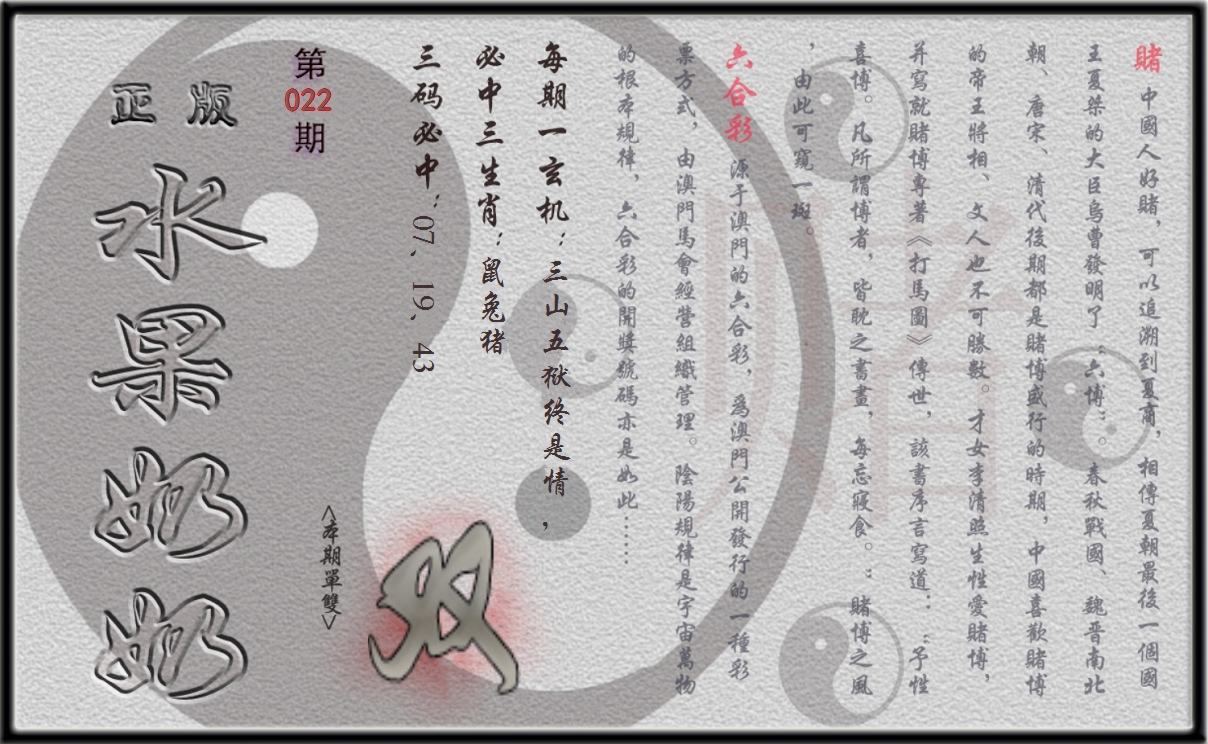 賭 中國人好賭，可以追溯到夏商，相傳夏朝最後一個國
王夏桀的大臣烏曹發明了“六博”。春秋戰國、魏晉南北
朝、唐宋、清代後期都是賭博盛行的時期，中國喜歡賭博
的帝王將相、文人也不可勝數。才女李清照生性愛賭博，
并寫就賭博專著《打馬圖》傳世，該書序言寫道：“予性
喜博。凡所謂博者，皆耽之書畫，每忘寢食。：賭博之風
，由此可窺一斑。
六合彩 源于澳門的六合彩，爲澳門公開發行的一種彩
票方式，由澳門馬會經營組織管理。陰陽規律是宇宙萬物
的根本規律，六合彩的開獎號碼亦是如此……
每期一玄机：三山五狱终是情，
必中三生肖：鼠兔猪
三码必中：07、19、43
第022期
<本期單雙>
双
正版
水果奶奶
赌